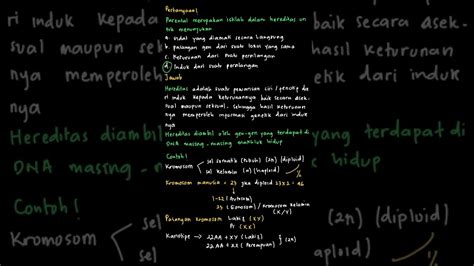 Pertanyaan!
Parental merupakan istilah dalam hereditas un
tuk menunjukan
a. sifat yang diamati secara langsung
b. pasangan gen dari suatu lokus yang sama
c. keturunan dari suatu persilangan
d. Induk dari suatu persilangan
Jawab
Hereditas adalah suatu pewarisan ciri / genetik da
ri induk kepada keturunannya baik secara asek-
sual maupun seksual. sehingga hasil keturunan
nya memperoleh informasi genetik dari induk
nya
Hereditas diambil oleh gen-gen yang terdapat di
DNA masing-masing makhluk hidup
Contoh!
Kromosom
sel somatik (tubuh) (2n) (diploid)
sel kelamin (n) (haploid)
Kromosom manusia = 23 jika diploid 23 x 2 = 46
1-22 (Autosom)
23 (Gonosom) / kromosom kelamin
(X/Y)
Pasangan kromosom Laki2 (XY)
Pr (XX)
Kariotipe → 22AA + XY (Laki2)
22AA + XX (Perempuan)
} (2n)
ri induk kepada
sual maupun
nya memperoleh
nya
Hereditas diambil
DNA masing-
Contoh!
Kromosom
sel
baik secara asek-
hasil keturunan
etik dari induk
yang terdapat di
hidup
(2n) (diploid)
haploid)